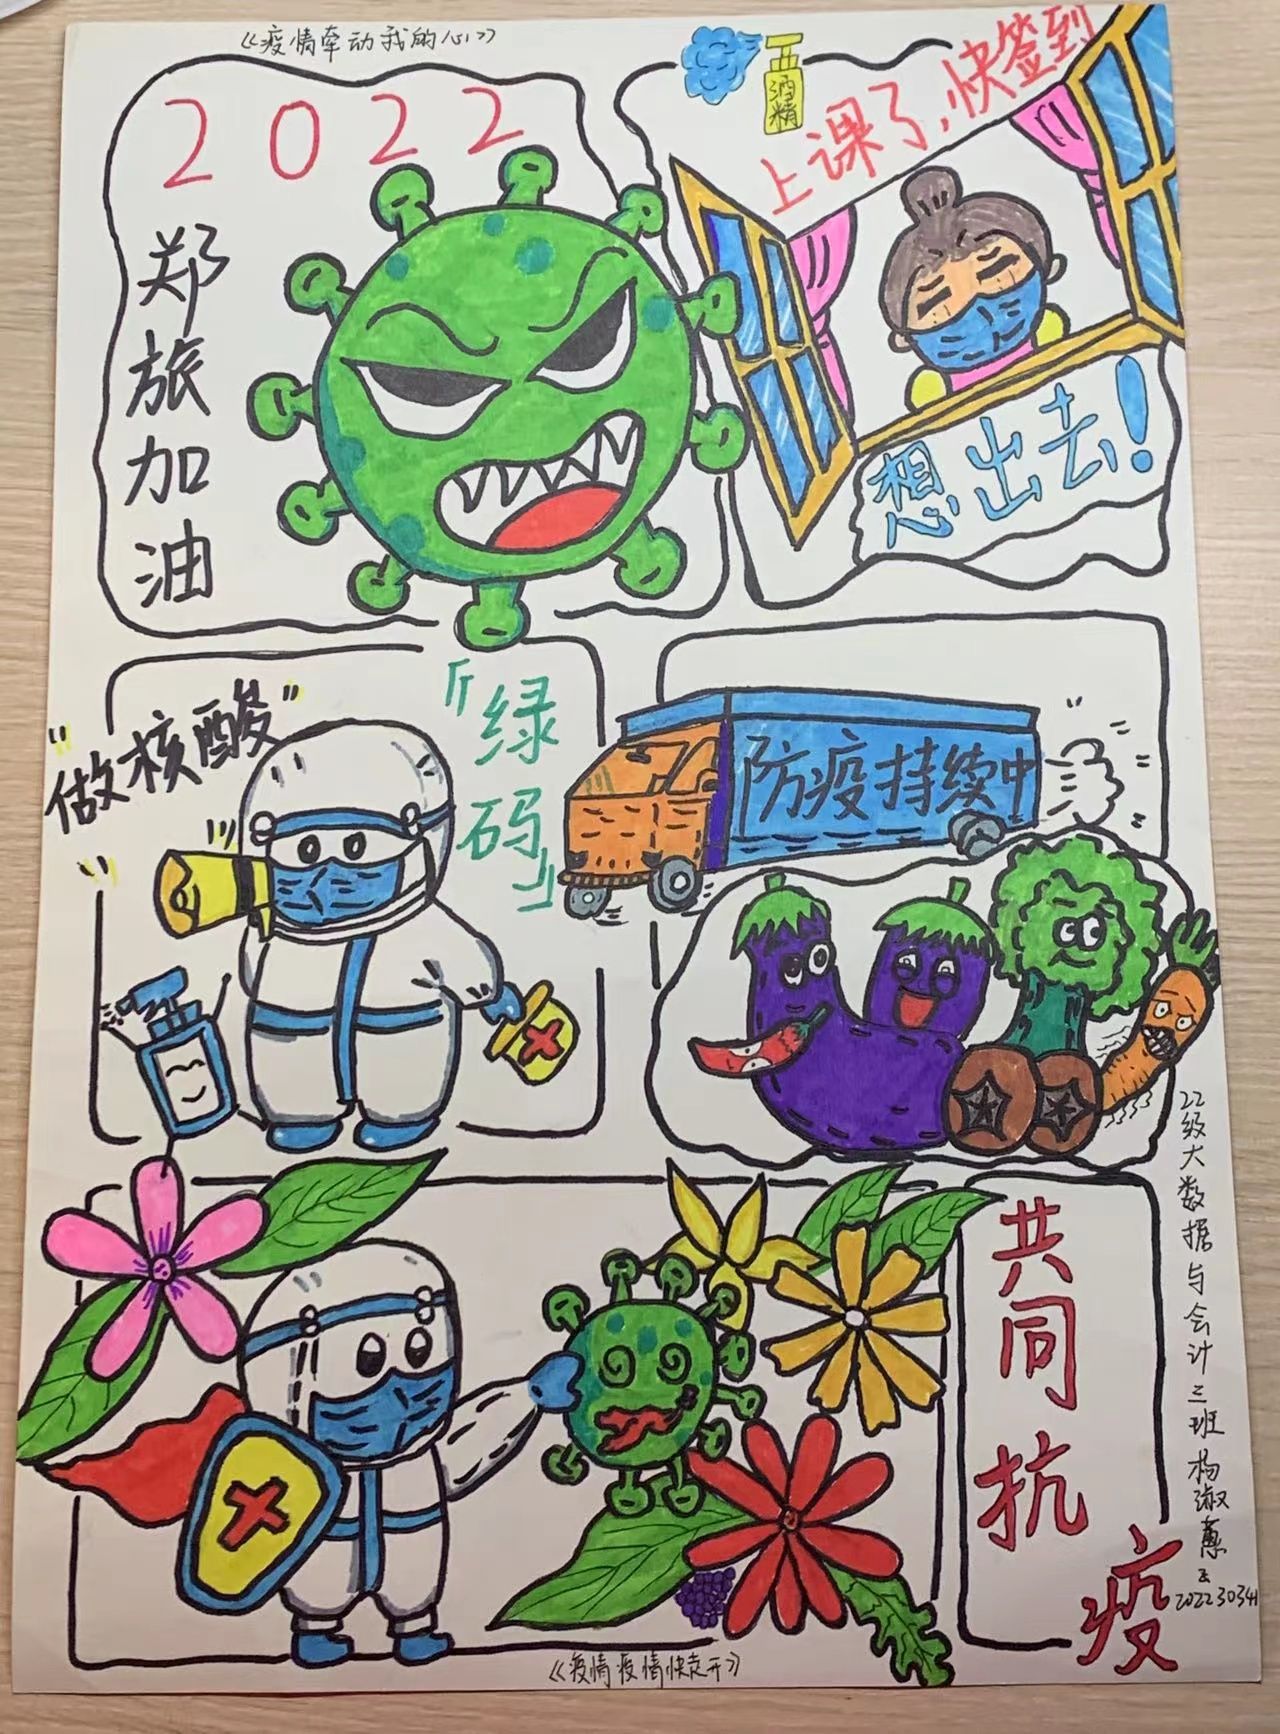 《疫情牵动我的心》
2022
郑旅加油
酒精
上课了,快签到
想出去!
"做核酸"
「绿码」
防疫持续中
共同抗疫
22级大数据与会计三班杨淑蕙于202230341
《疫情疫情快走开》